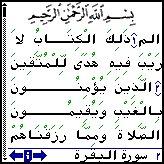 بِسْمِ اللَّهِ الرَّحْمَنِ الرَّحِيمِ
الم ذَلِكَ الْكِتَابُ لَا
رَيْبَ فِيهِ هُدًى لِّلْمُتَّقِينَ
الَّذِينَ يُؤْمِنُونَ
بِالْغَيْبِ وَيُقِيمُونَ
الصَّلَاةَ وَمِمَّا رَزَقْنَاهُمْ
سورة البقرة